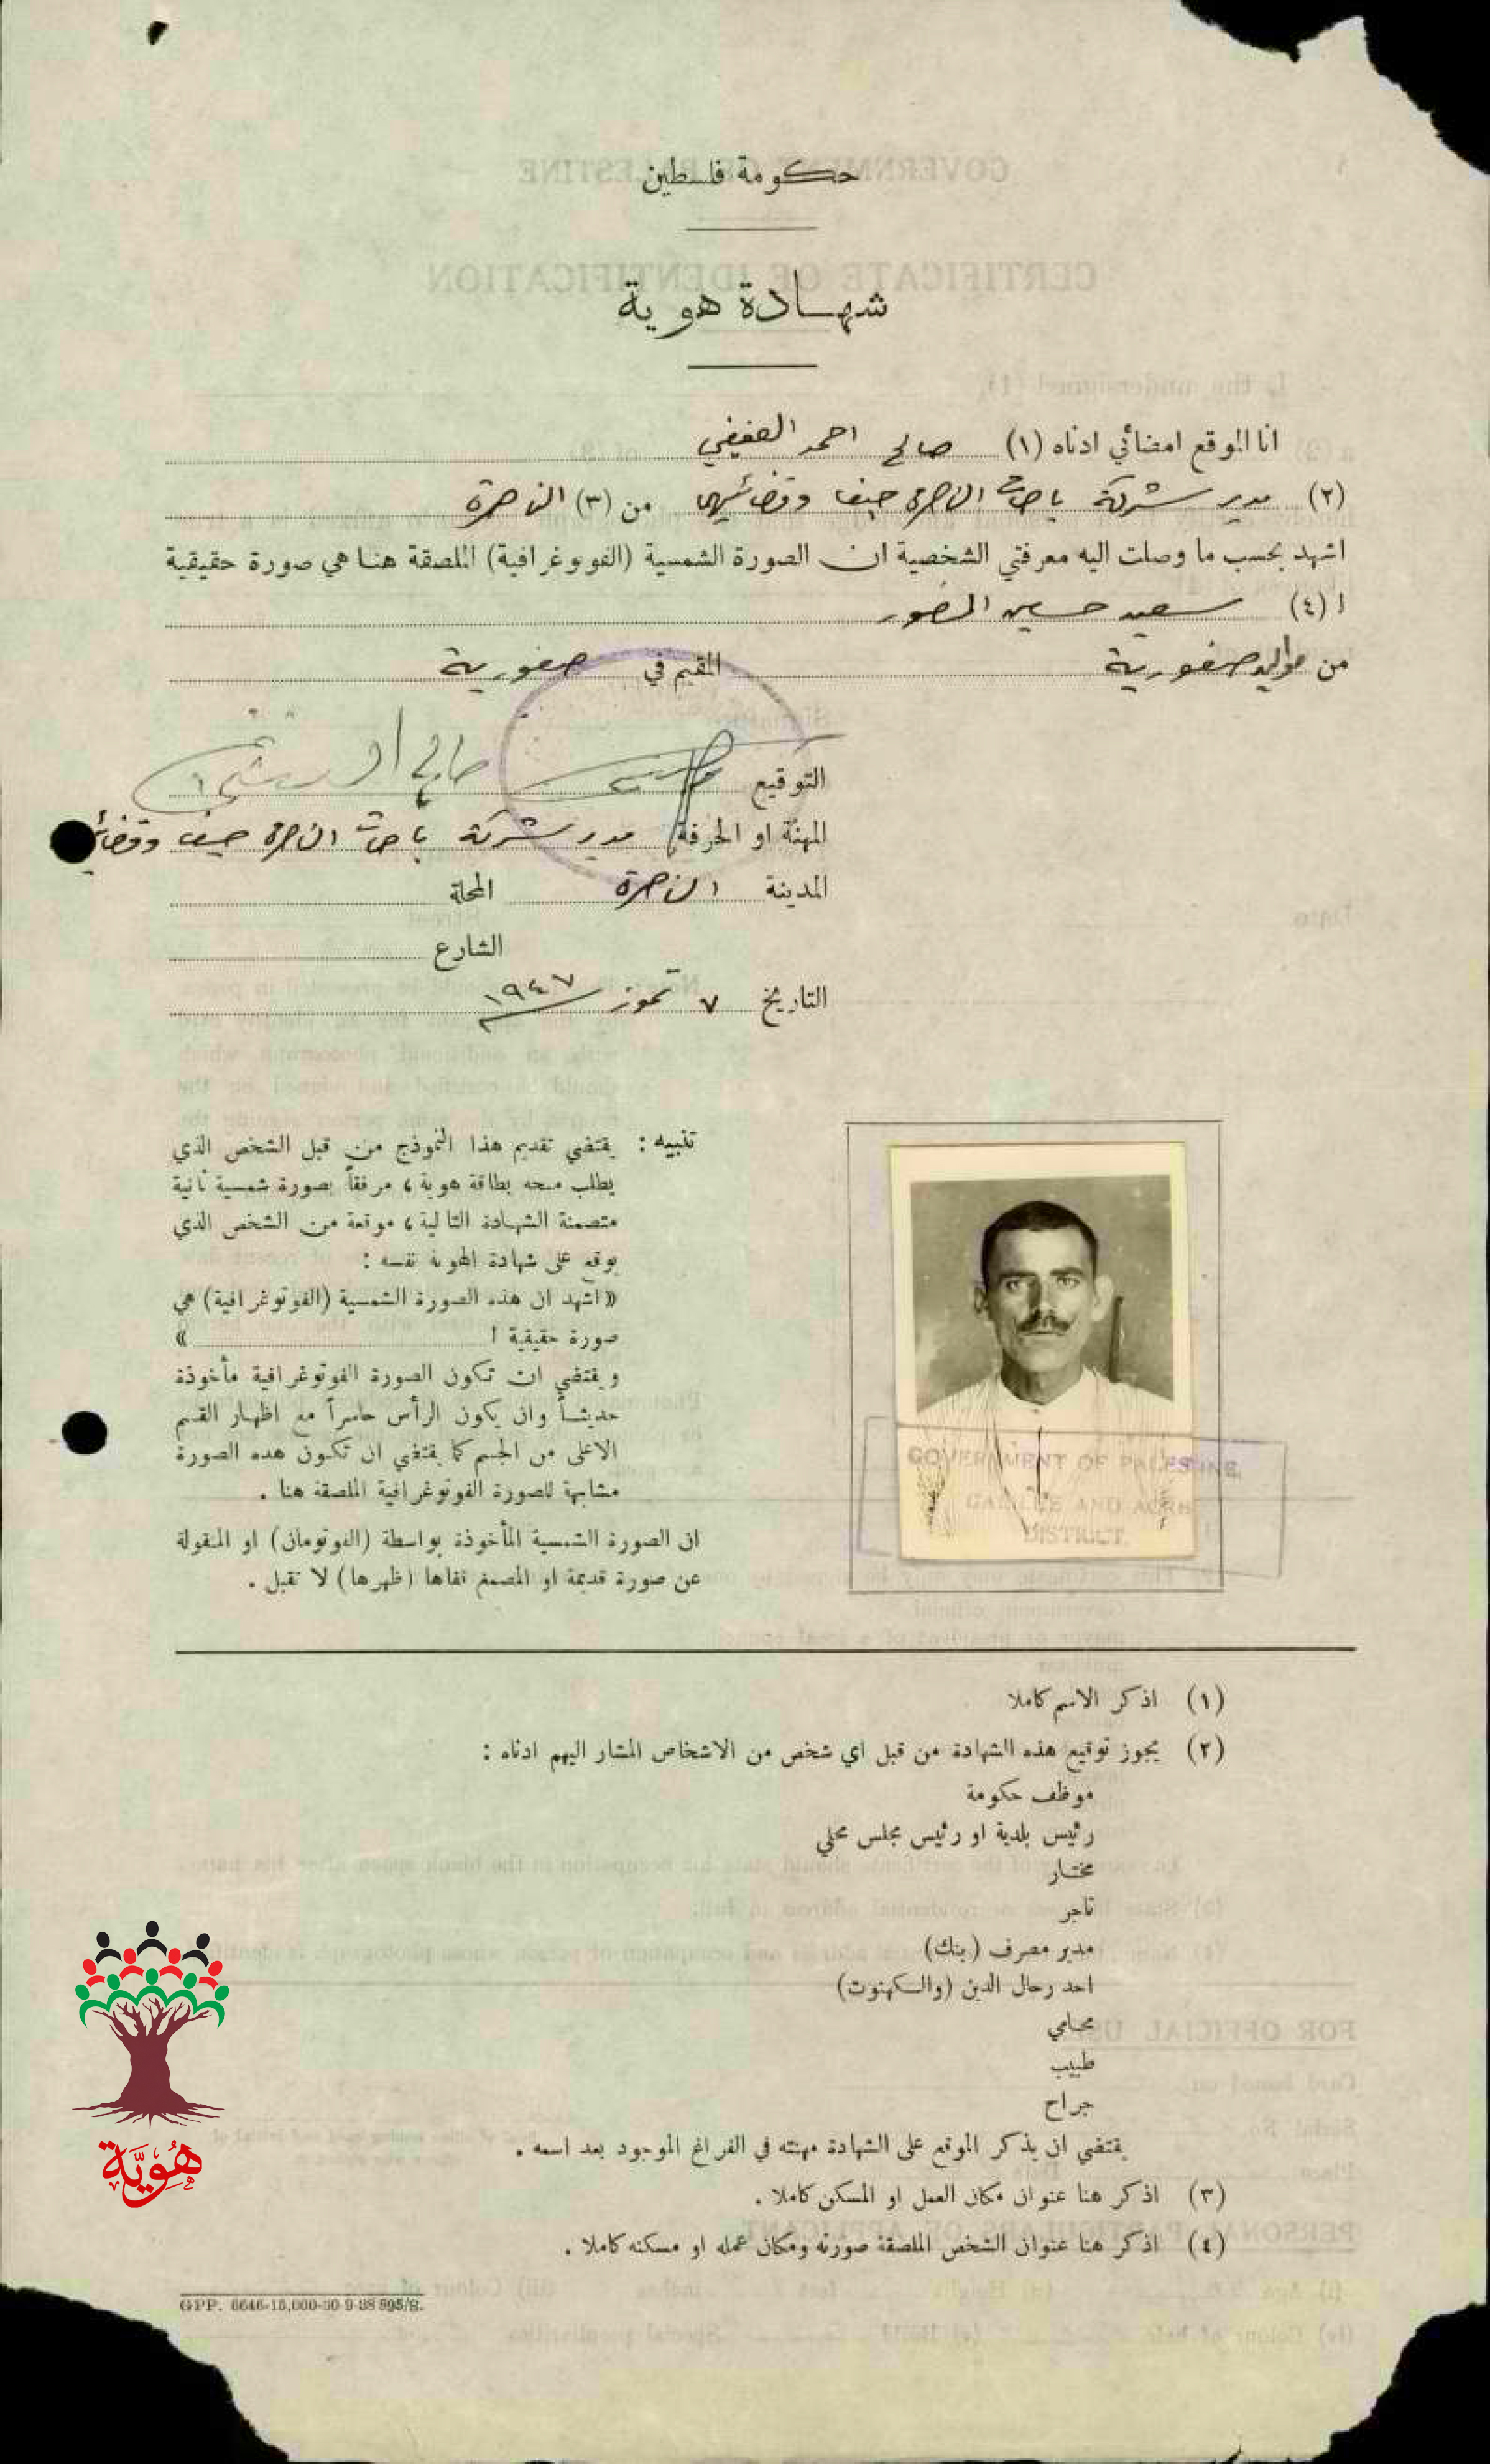 حكومة فلسطين
شهادة هوية
انا الموقع امضائي ادناه (١) صالح احمد العفيفي
(٢) مدير شركة باصات الناصرة حيفا وقضائيهما من (٣) الناصرة
اشهد بحسب ما وصلت اليه معرفتي الشخصية ان الصورة الشمسية (الفوتوغرافية) الملصقة هنا هي صورة حقيقية
ا (٤) سعيد حسين
من مواليد صفورية المقيم في صفورية
التوقيع صالح
المهنة او الحرفة مدير شركة باصات الناصرة حيفا
المدينة الناصرة المحلة
الشارع
التاريخ ٧ تموز ١٩٤٧
تنبيه : يقتضي تقديم هذا النموذج من قبل الشخص الذي
يطلب منحه بطاقة هوية ، مرفقاً بصورة شمسية ثانية
متضمنة الشهادة التالية ، موقعة من الشخص الذي
يوقع على شهادة الهوية نفسه :
« اشهد ان هذه الصورة الشمسية (الفوتوغرافية) هي
صورة حقيقية ا »
ويقتضي ان تكون الصورة الفوتوغرافية مأخوذة
حديثاً وان يكون الرأس حاسراً مع اظهار القسم
الاعلى من الجسم كما يقتضي ان تكون هذه الصورة
مشابهة للصورة الفوتوغرافية الملصقة هنا .
ان الصورة الشمسية المأخوذة بواسطة (الفوتومان) او المنقولة
عن صورة قديمة او المصمغ قفاها (ظهرها) لا تقبل .
GOVERNMENT OF PALESTINE.
GALILEE AND ACRE
DISTRICT.
(١) اذكر الاسم كاملا
(٢) يجوز توقيع هذه الشهادة من قبل اي شخص من الاشخاص المشار اليهم ادناه :
موظف حكومة
رئيس بلدية او رئيس مجلس محلي
مختار
تاجر
مدير مصرف (بنك)
احد رجال الدين (والكهنوت)
محامي
طبيب
جراح
يقتضي ان يذكر الموقع على الشهادة مهنته في الفراغ الموجود بعد اسمه .
(٣) اذكر هنا عنوان مكان العمل او المسكن كاملا .
(٤) اذكر هنا عنوان الشخص الملصقة صورته ومكان عمله او مسكنه كاملا .
هُوِيَّة
GPP. 6646-15,000-30-9-38 895/S.